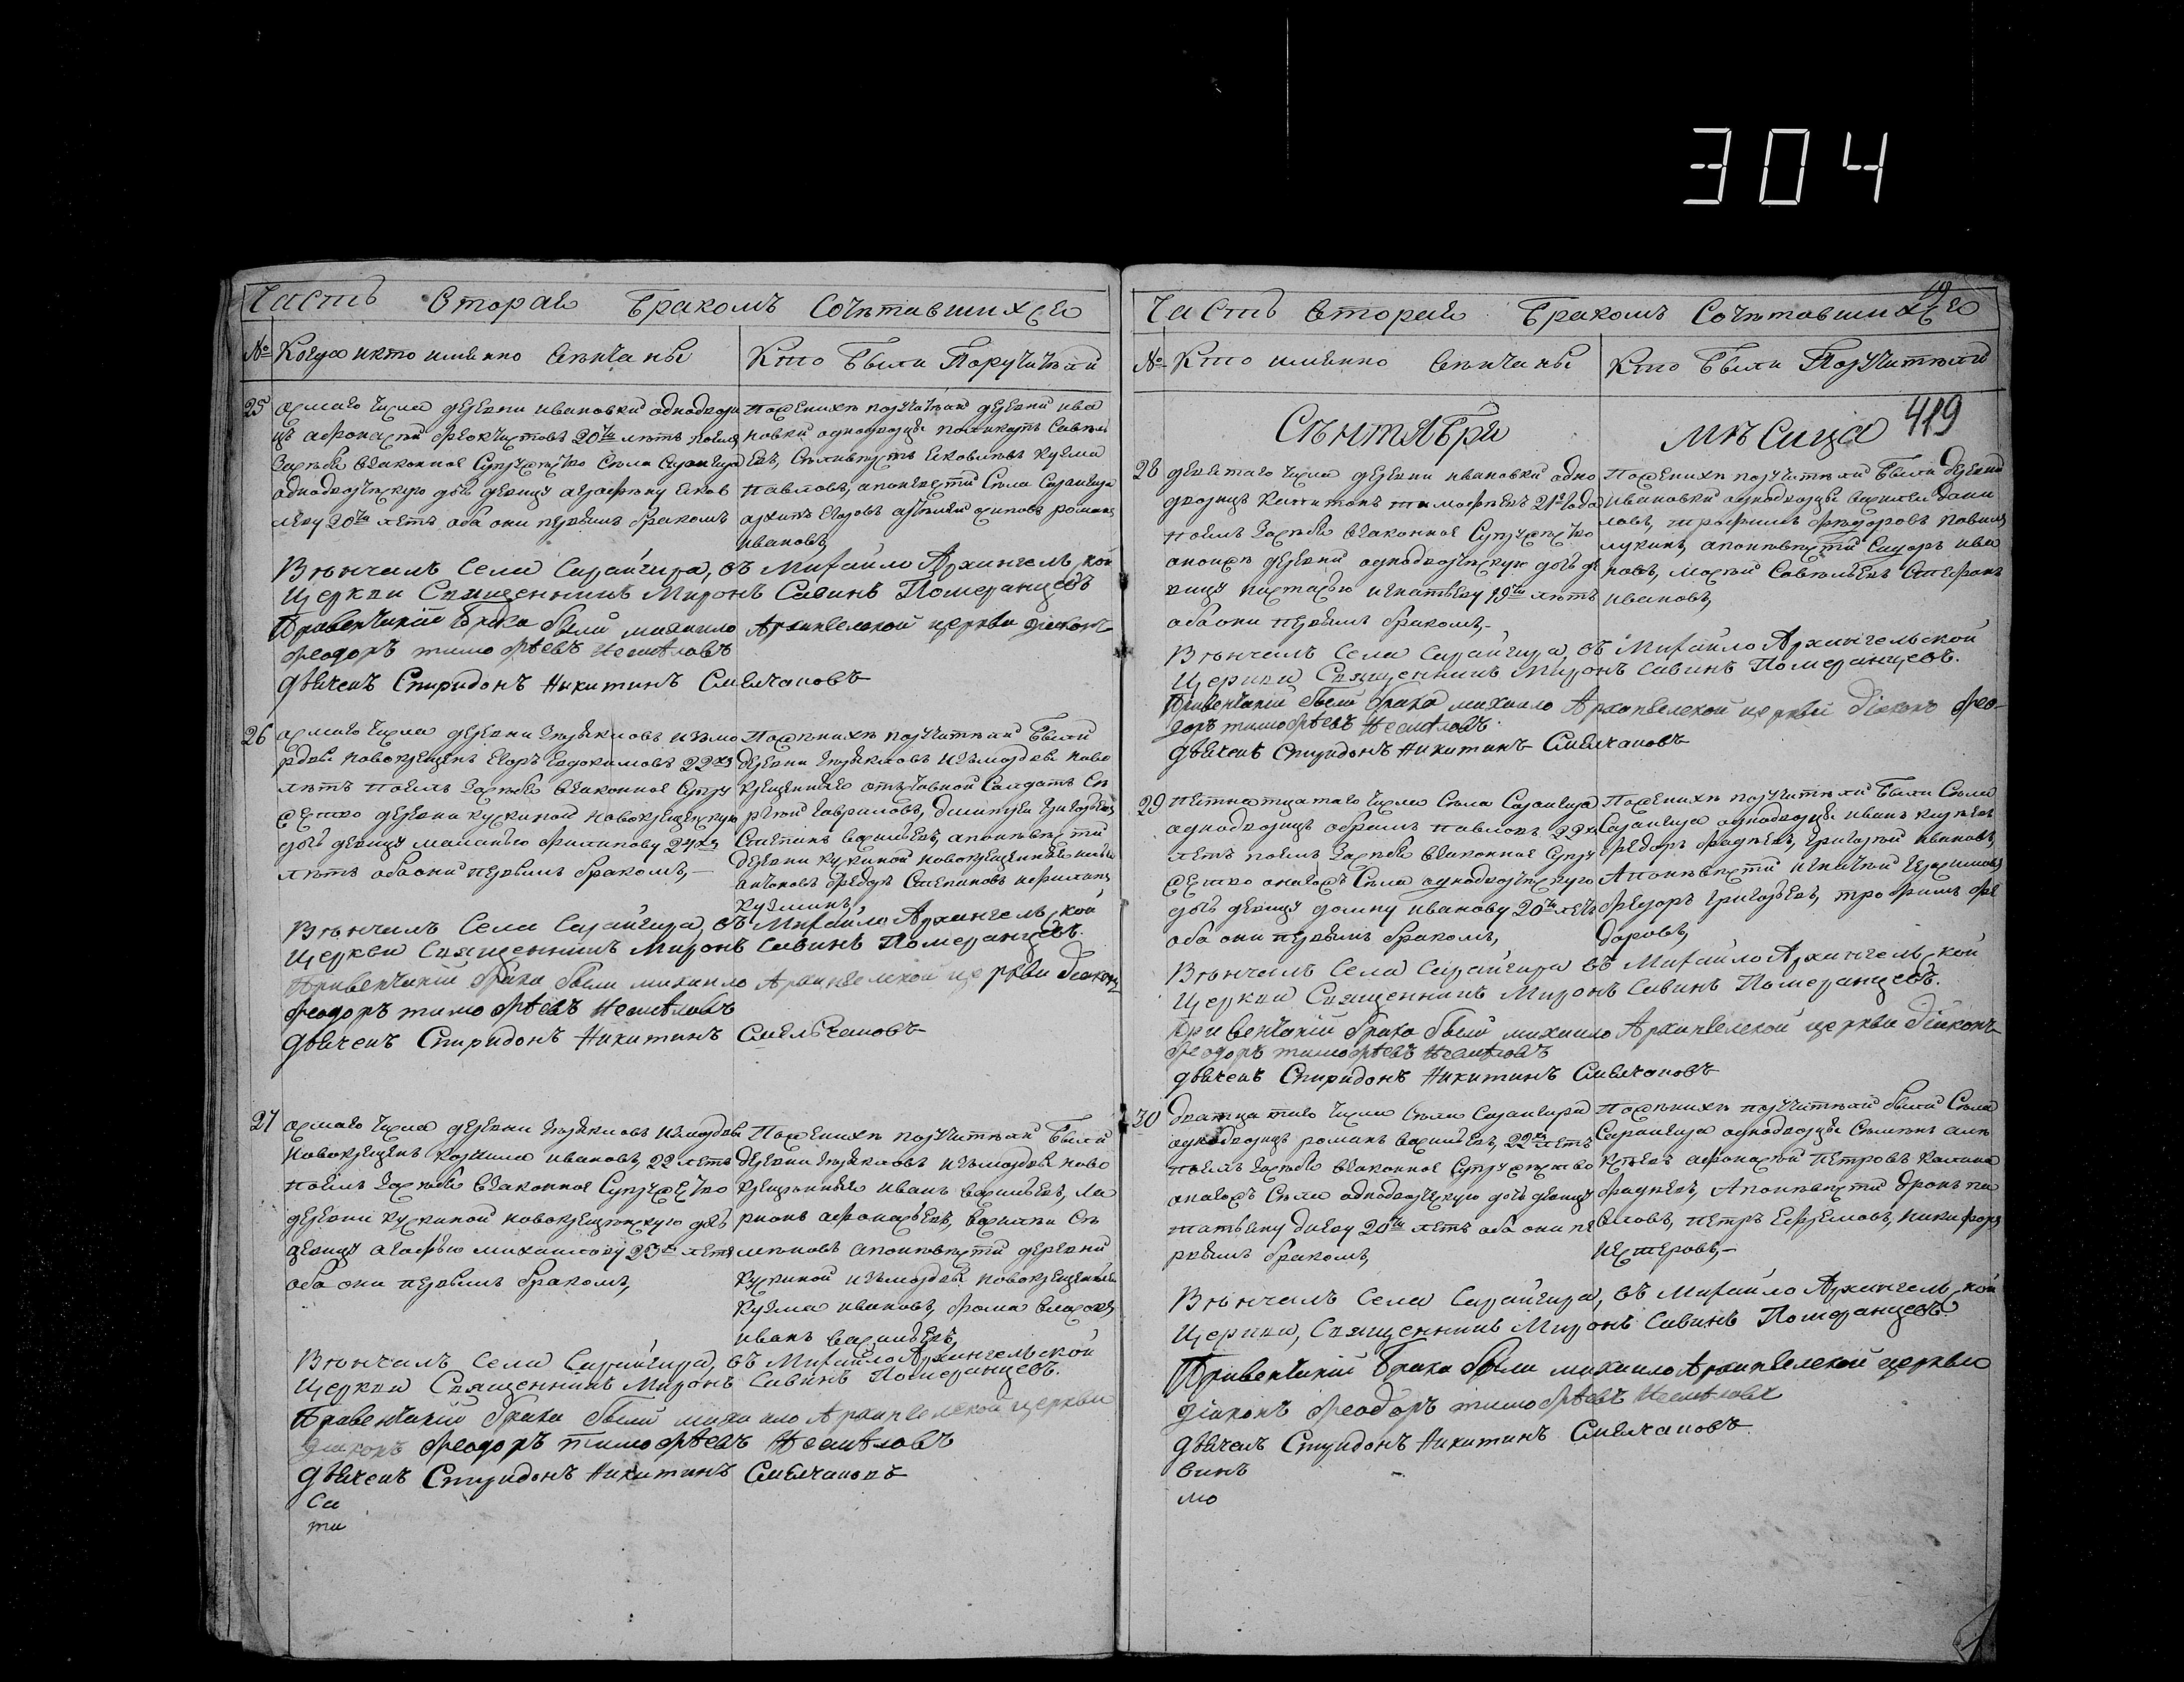 304
Часть Вторая Бракомъ Сочетавшихся
№ Когда и кто именно венчаны
Кто Были Поручители
25 осмаго числа деревни ивановки однодворе
цъ афонасей феоктистовъ 20ти летъ поялъ
засебя взаконное Супружество Села Сарангира
однодворческую дочь девицу агафену яков
леву 20ти летъ оба они первымъ бракомъ
Поженихе поручители деревни ива
новки однодворцы поликарпъ Савель
евъ, яковлевъ кузма
павловъ, апоневести Села Сарангира
архипъ Егоровъ осиповъ романъ
ивановъ,
Венчалъ Села Сарангира, въ Михайло Архангельской
Церкви Священникъ Миронъ Савинъ Померанцевъ
Привенчании Брака были михаило Архангельской церкви диаконъ
феодоръ тимофеевъ Несмеловъ
Дьячекъ Спиридонъ Никитинъ Смелчаковъ
26 осмаго числа деревни измо
рдвы новокрещенъ Егоръ Евдокимовъ 22хъ
летъ поялъ засебя взаконное Супру
жество деревни кускиной новокрещенскую
дочь девицу маланью филипову 24хъ
летъ обаони первымъ бракомъ,
Поженихе поручители Были
деревни измордвы ново
крещенныя отставной Салдатъ Се
ргей Гавриловъ, Дмитрей Григорьевъ
Степанъ васильевъ, апоневести
деревни кускиной новокрещенныя
антоновъ федоръ Степановъ ифилипъ
кузминъ,
Венчалъ Села Сарангира, въ Михайло Архангельской
Церкви Священникъ Миронъ Савинъ Померанцевъ.
Привенчании брака были михаило Архангельской церкви диаконъ
феодоръ тимофеевъ Несмеловъ
Дьячекъ Спиридонъ Никитинъ Смельчаковъ
27 осмаго числа деревни измордвы
новокрещенъ ивановъ, 22 летъ
поялъ засебя взаконное Супружество
деревни кускиной новокрещенскую дочь
девицу агафью михаилову 23хъ летъ
оба они первымъ бракомъ,
Поженихе поручители Были
деревни измордвы ново
крещенныя иванъ васильевъ, ла
рионъ афонасьевъ, василей Се
меновъ апоневести деревни
кускиной измордвы новокрещенныя
кузма ивановъ, фома власовъ
иванъ васильевъ,
Венчалъ Села Сарангира, въ Михайло Архангельской
Церкви Священникъ Миронъ Савинъ Померанцевъ.
Привенчании брака были михаило Архангельской церкви
диаконъ феодоръ тимофеевъ Несмеловъ
Дьячекъ Спиридонъ Никитинъ Смелчаковъ
Са
ти
Часть Вторая Бракомъ Сочетавшихся
№ Кто именно венчаны
Кто Были Поручители
419
Сентября
месяца
28 девятаго числа деревни ивановки одно
дворецъ Капитонъ тимофеевъ 21го года
поялъ засебя взаконное Супружество
оноижъ деревни однодворческую дочь де
вицу настасью игнатьеву 19ти летъ
обаони первымъ бракомъ,
Поженихе поручители Были деревни
ивановки однодворцы василей дани
ловъ, трофимъ федоровъ павелъ
лукинъ, апоневести Сидоръ ива
новъ, Савельевъ Степанъ
ивановъ,
Венчалъ Села Сарангира, въ Михайло Архангельской
Церкви Священникъ Миронъ Савинъ Померанцевъ.
Привенчании были брака михаило Архангельской церкви диаконъ фео-
доръ тимофеевъ Несмеловъ.
Дьячекъ Спиридонъ Никитинъ Смелчаковъ
29 петнатцатаго числа Села Сарангира
однодворецъ абрамъ павловъ 22хъ
летъ поялъ засебя взаконное Супру
жество оногожъ Села однодворческую
дочь девицу домну иванову 20ти летъ
оба они первымъ бракомъ,
Поженихе поручители Были Села
Сарангира однодворцы иванъ
федоръ фадеевъ, григорей ивановъ,
Апоневести Герасимовъ
федоръ Григорьевъ, трофимъ фе
доровъ,
Венчалъ Села Сарангира въ Михайло Архангельской
Церкви Священникъ Миронъ Савинъ Померанцевъ.
Привенчании брака были михаило Архангельской церкви диаконъ
феодоръ тимофеевъ Несмеловъ
Дьячекъ Спиридонъ Никитинъ Смелчаковъ
30 дватцатаго числа Села Сарангира
однодворецъ романъ васильевъ, 22хъ летъ
поялъ засебя взаконное Супружество
оногожъ Села однодворческую дочь девицу
татьяну 20ти летъ оба они пе
рвымъ бракомъ,
Поженихе поручители были Села
Сарангира однодворцы Семенъ але
ксеевъ афонасей Петровъ Калина
фадеевъ, Апоневести
павловъ, петръ Ефремовъ, никифоръ
нестеровъ,
Венчалъ Села Сарангира, въ Михайло Архангельской
Церкви, Священникъ Миронъ Савинъ Померанцевъ
Привенчании Брака были михаило Архангельской церкви
диаконъ феодоръ тимофеевъ Несмеловъ
Дьячекъ Спиридонъ Никитинъ Смелчаковъ.
винъ
мо